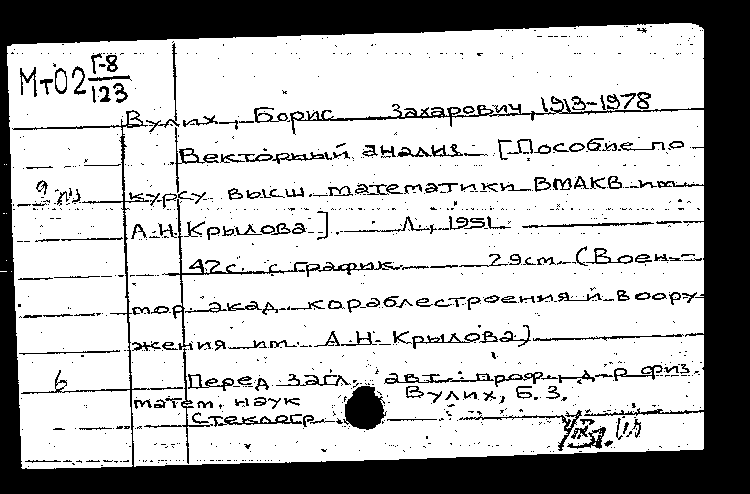 Мт02 Г-8
123
Вулих, Борис Захарович, 1913-1978
Векторный анализ. [Пособие по
курсу высш. математики ВМАКВ им.
А.Н. Крылова]. Л., 1951.
42с. с график. 29см. (Воен-
мор. акад. кораблестроения и воору-
жения им. А.Н. Крылова)
6 Перед загл. авт.: проф., д-р физ.
матем. наук Вулих, Б.З.
Стеклогр.